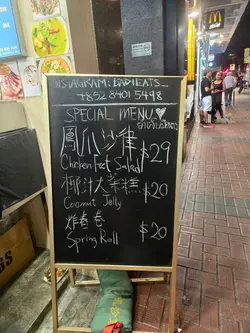 INSTAGRAM: BABIEATS_
+852 8401 5498
SPECIAL MENU
鳳爪沙律
Chicken Feet Salad $29
椰汁大菜糕
Coconut Jelly $20
炸春卷
Spring Roll $20